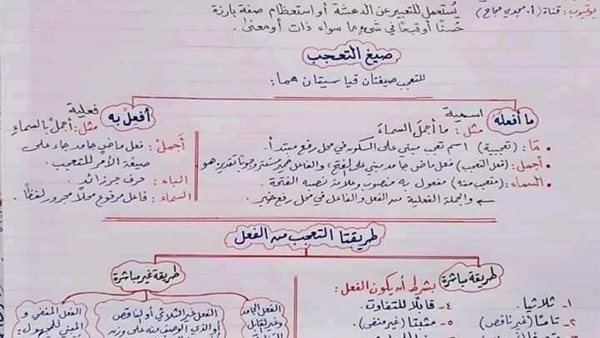 يوتيوب: قناة (أ. مجدي حجاج)
يُستعمل للتعبير عن الدهشة أو استعظام صفة بارزة
حُسنًا أو قبحًا في شيءٍ ما سواء ذات أو معنى.
صيغ التعجب
للتعجب صيغتان قياسيتان هما:
ما أفعلَه
اسمية
مثل: ما أجملَ السماءَ
• مَا: (تعجبية) اسم تعجب مبني على السكون في محل رفع مبتدأ.
• أجملَ: (فعل التعجب) فعل ماضٍ جامد مبني على الفتح، والفاعل ضمير مستتر وجوبًا تقديره هو
• السماءَ: (متعجب منه) مفعول به منصوب وعلامة نصبه الفتحة
والجملة الفعلية من الفعل والفاعل في محل رفع خبر.
أفعِلْ به
فعلية
مثل: أجمِلْ بالسماءِ
أجمِلْ: فعل ماضٍ جامد جاء على
صيغة الأمر للتعجب.
الباء: حرف جر زائد.
السماء: فاعل مرفوع محلًا مجرور لفظًا.
طريقتا التعجب من الفعل
طريقة مباشرة
بشرط أن يكون الفعل:
١- ثلاثيا.
٤- قابلًا للتفاوت.
٢- تامًا (غير ناقص)
٥- مثبتا (غير منفي)
طريقة غير مباشرة
الفعل غير الثلاثي أو الناقص
أو الذي الوصف منه على وزن
الفعل الجامد
وغير القابل
الفعل المنفي و
المبني للمجهول: